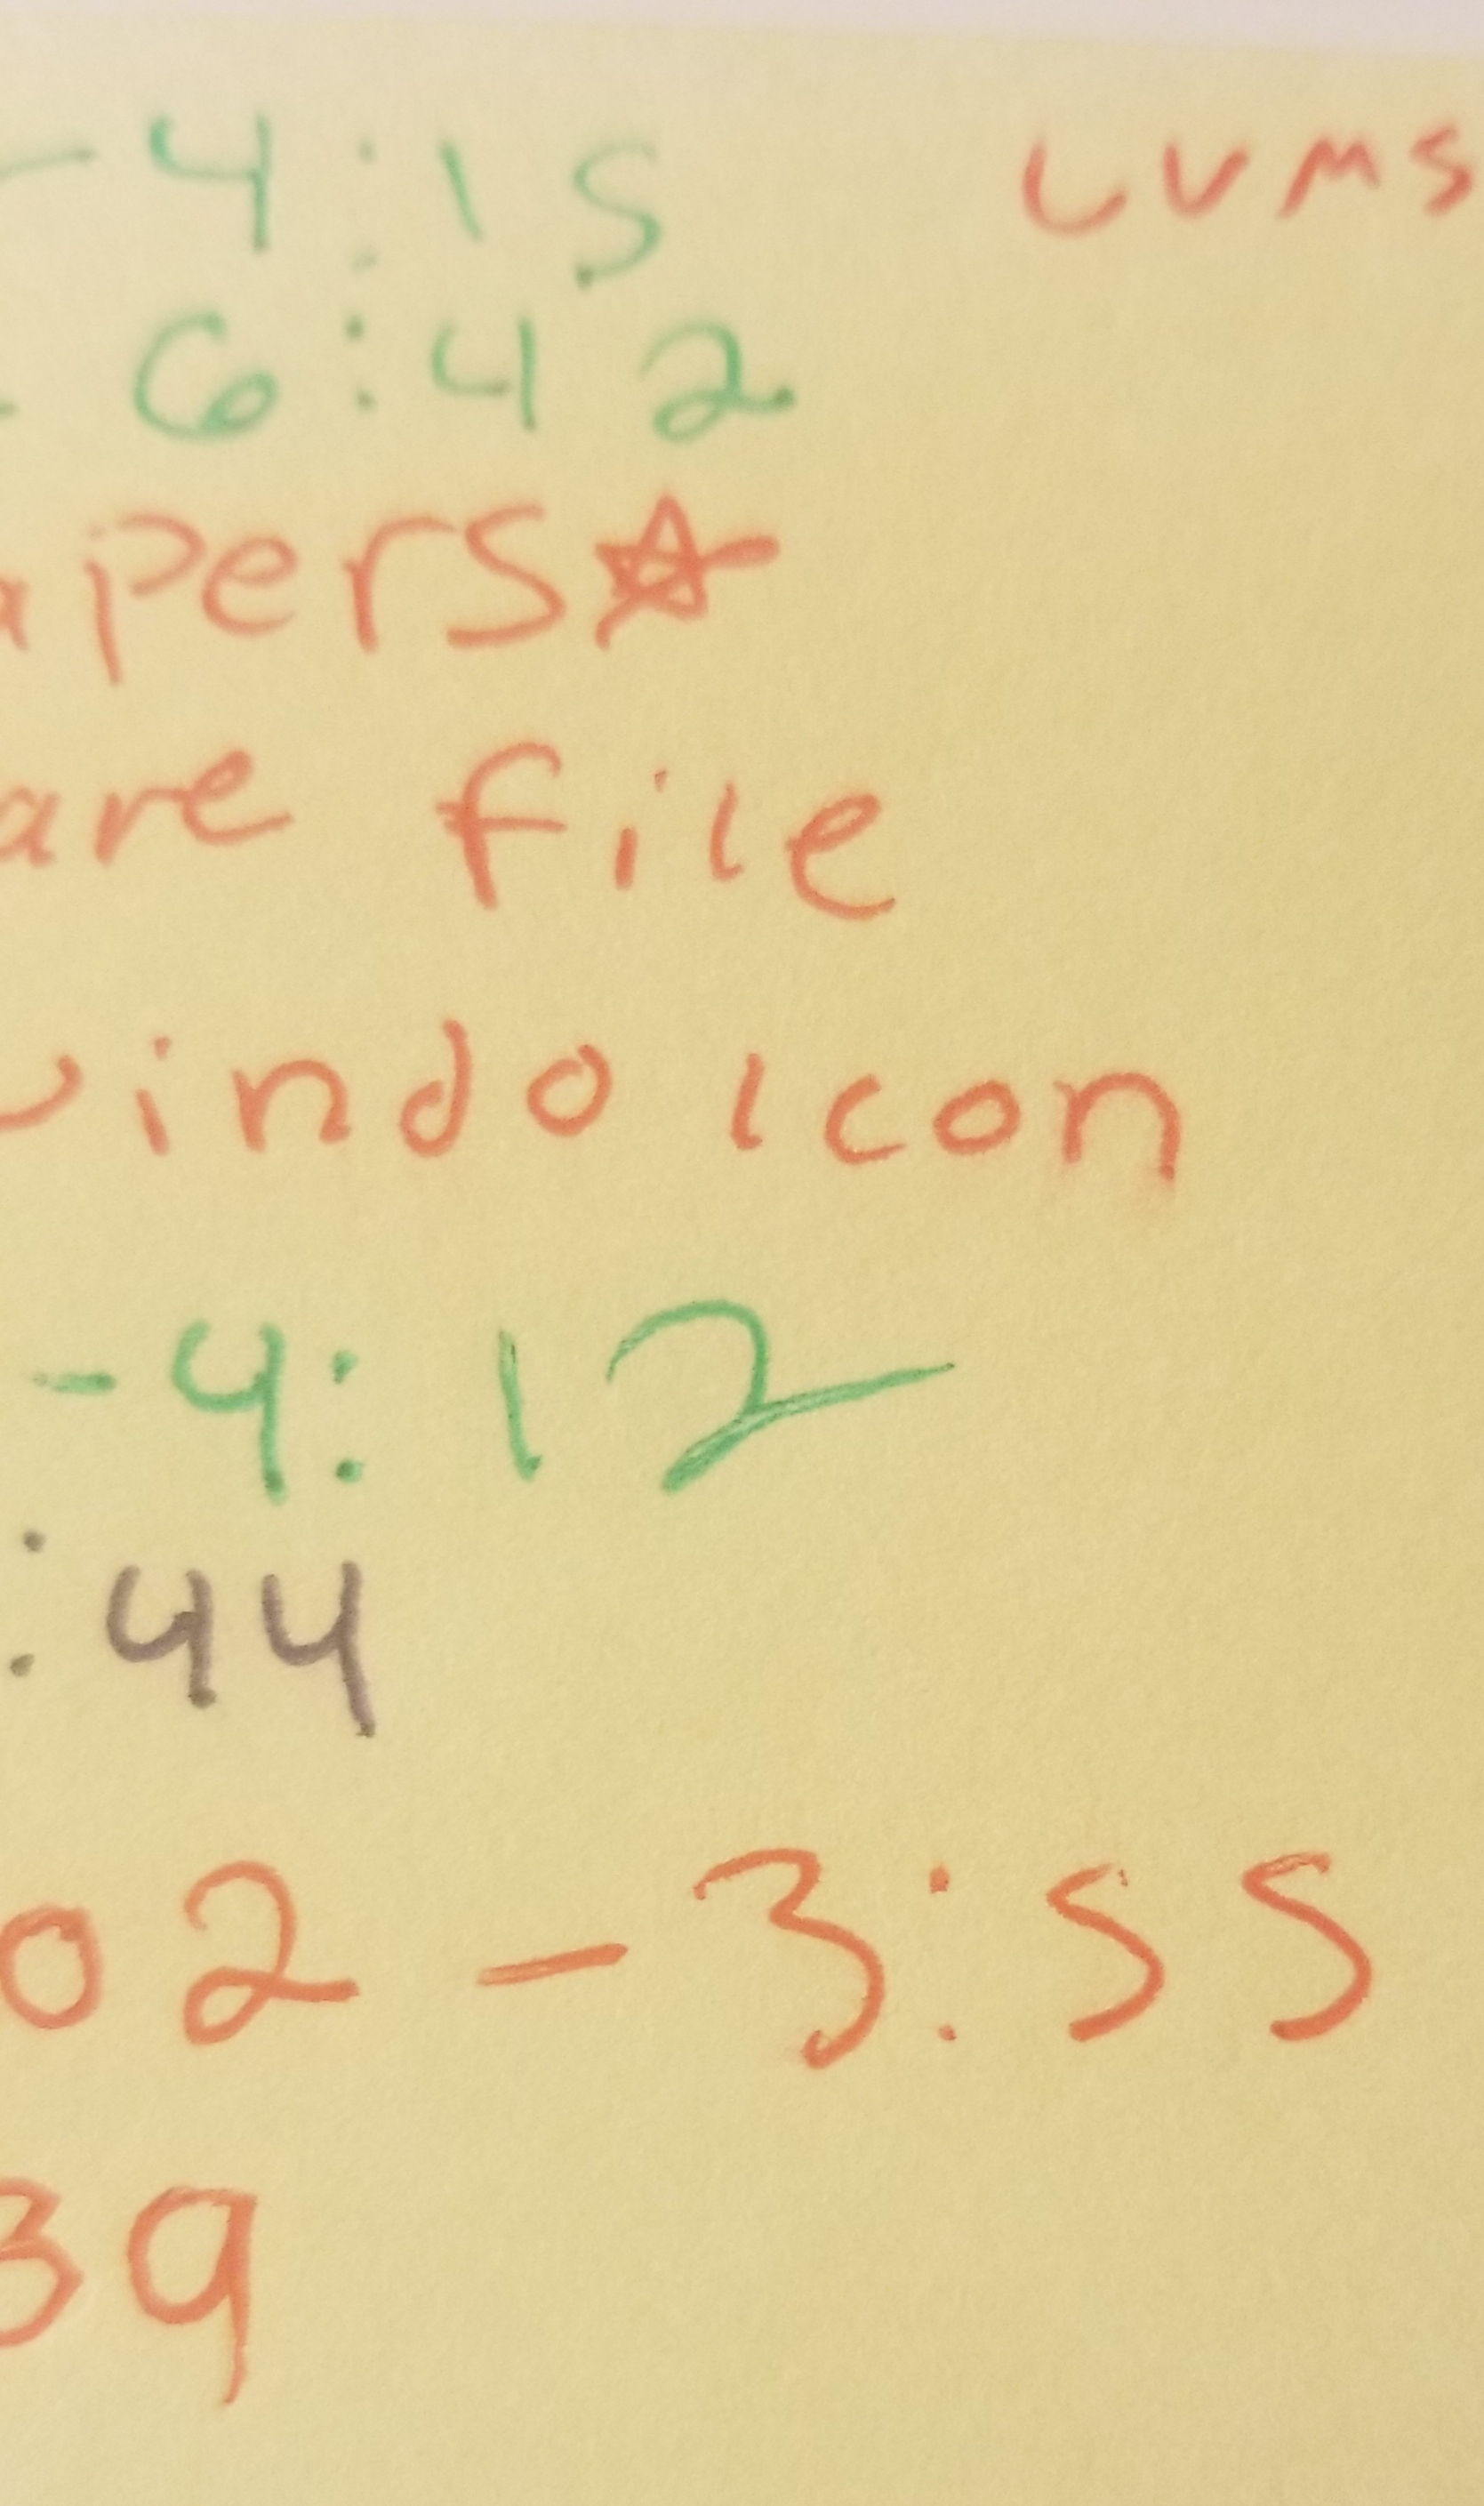 - 4:15 LVMS
- 6:42
apers☆
are file
indo icon
- 4:12
:44
02 - 3:55
39